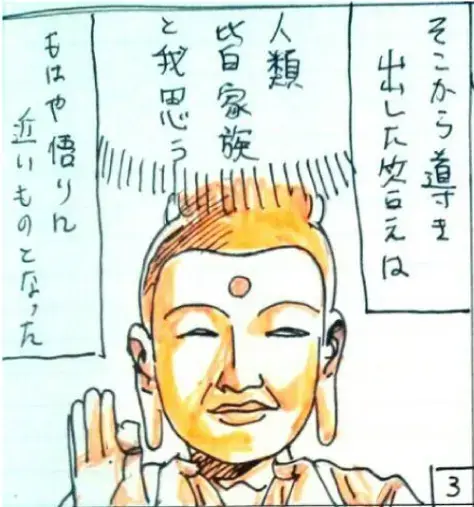 そこから導き
出した答えは
人類
皆家族
と我思う
もはや悟りに
近いものとなった
3